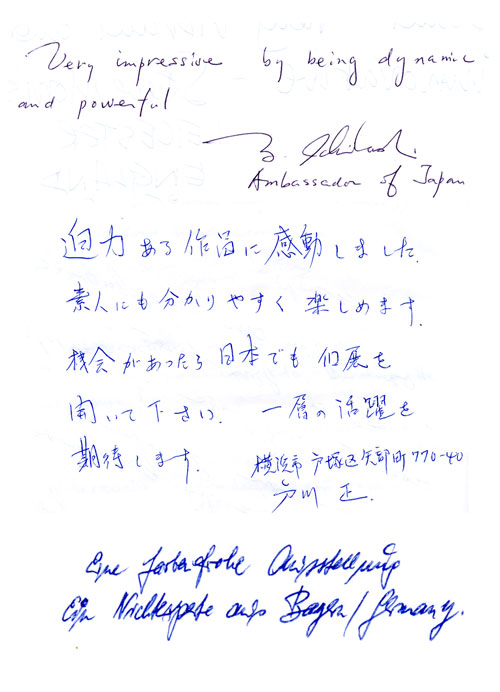 Very impressive by being dynamic
and powerful
Ambassador of Japan
迫力ある作品に感動しました.
素人にも分かりやすく楽しめます.
機会があったら日本でも個展を
開いて下さい. 一層の活躍を
期待します.
横浜市戸塚区矢部町770-40
戸川 正.
Eine farbenfrohe Ausstellung
Ein Nichtexperte aus Bayern/Germany.